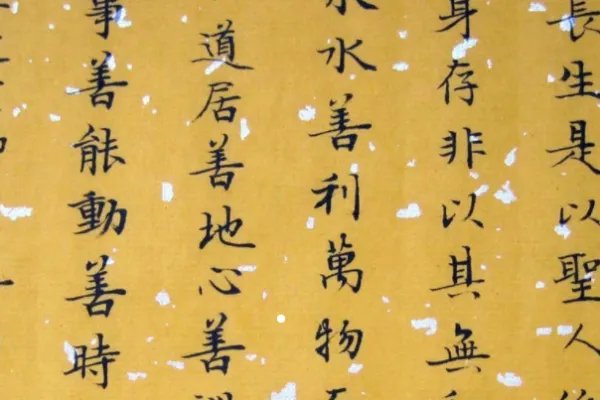 長生是以聖人
身存非以其無
水善利萬物
道居善地心善
事善能動善時